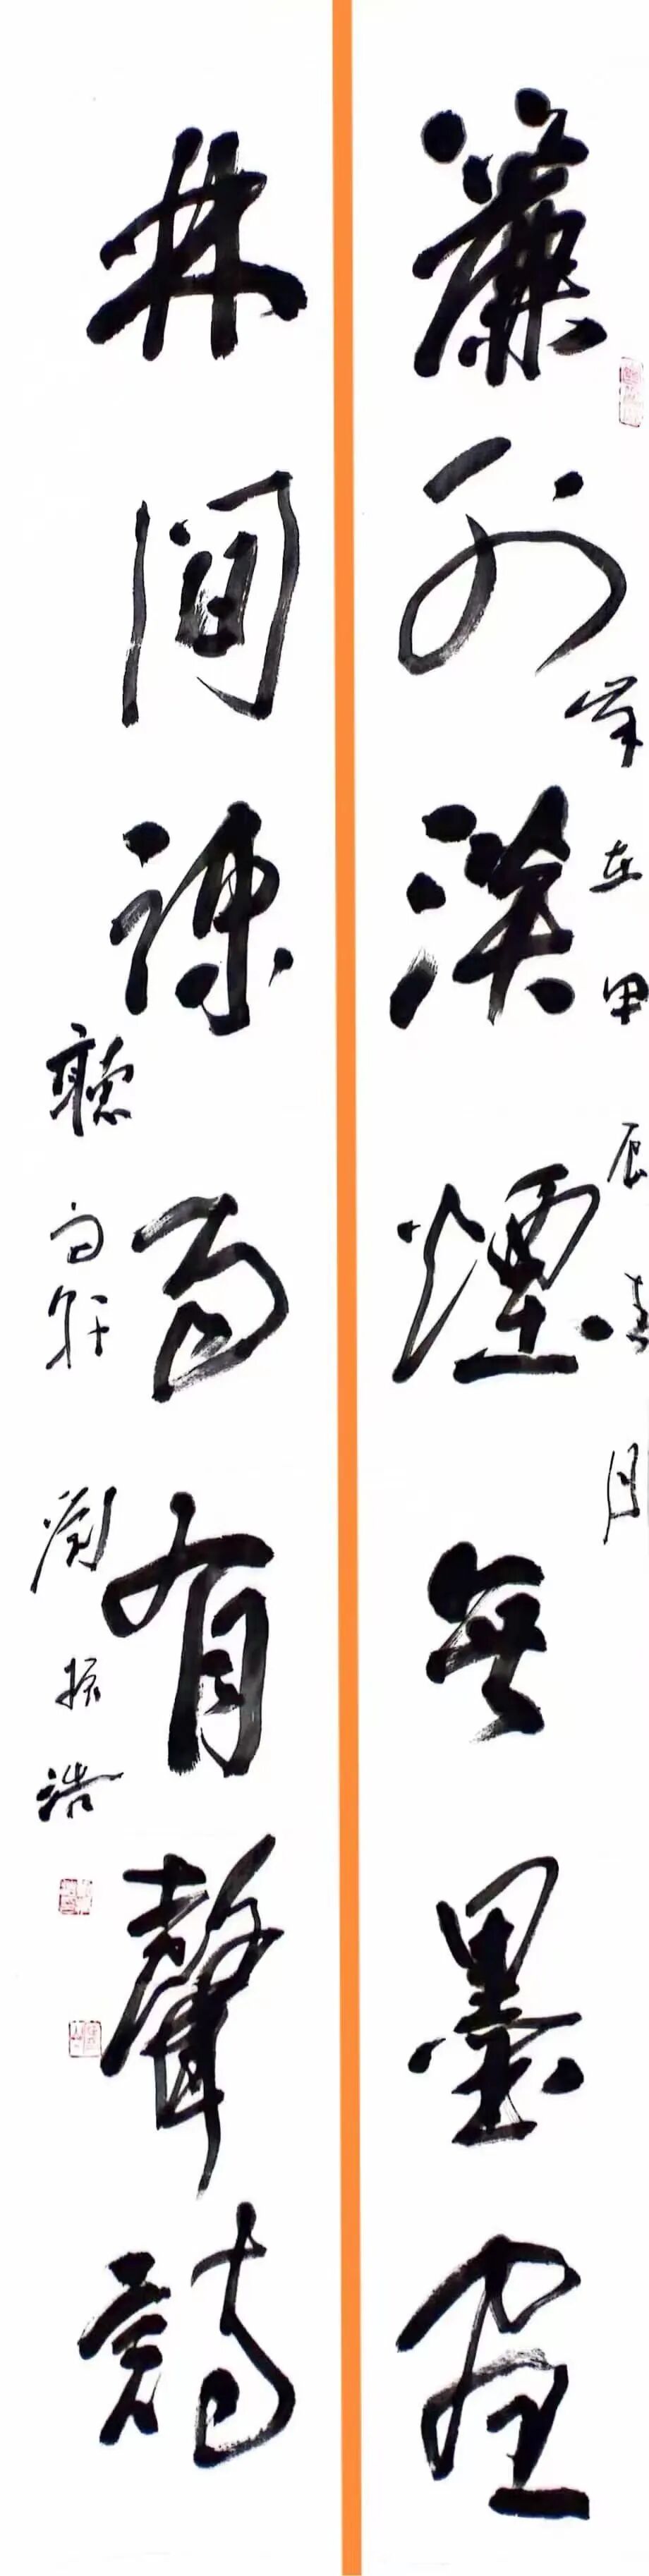 簾外淡煙無墨畫
歲在甲辰春月
林間疎雨有聲詩
聽雨軒 劉振浩